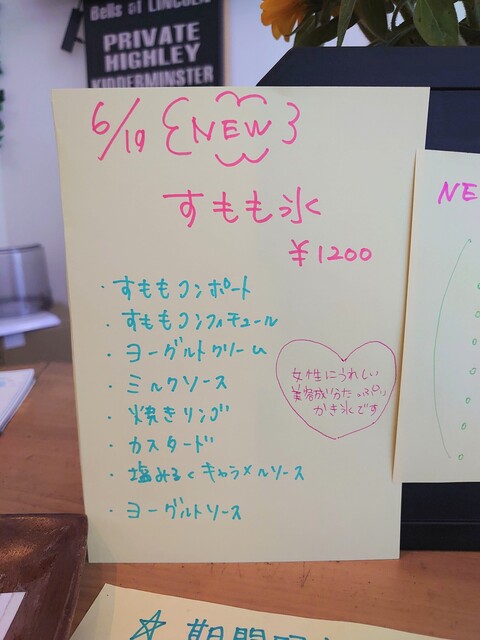 Bells of LINCOLN
PRIVATE
HIGHLEY
KIDDERMINSTER
6/19 NEW
すもも氷
¥1200
・すももコンポート
・すももコンフィチュール
・ヨーグルトクリーム
・ミルクソース
・焼きリンゴ
・カスタード
・塩みるくキャラメルソース
・ヨーグルトソース
女性にうれしい
美容成分たっぷり
かき氷です
NE
☆期間限